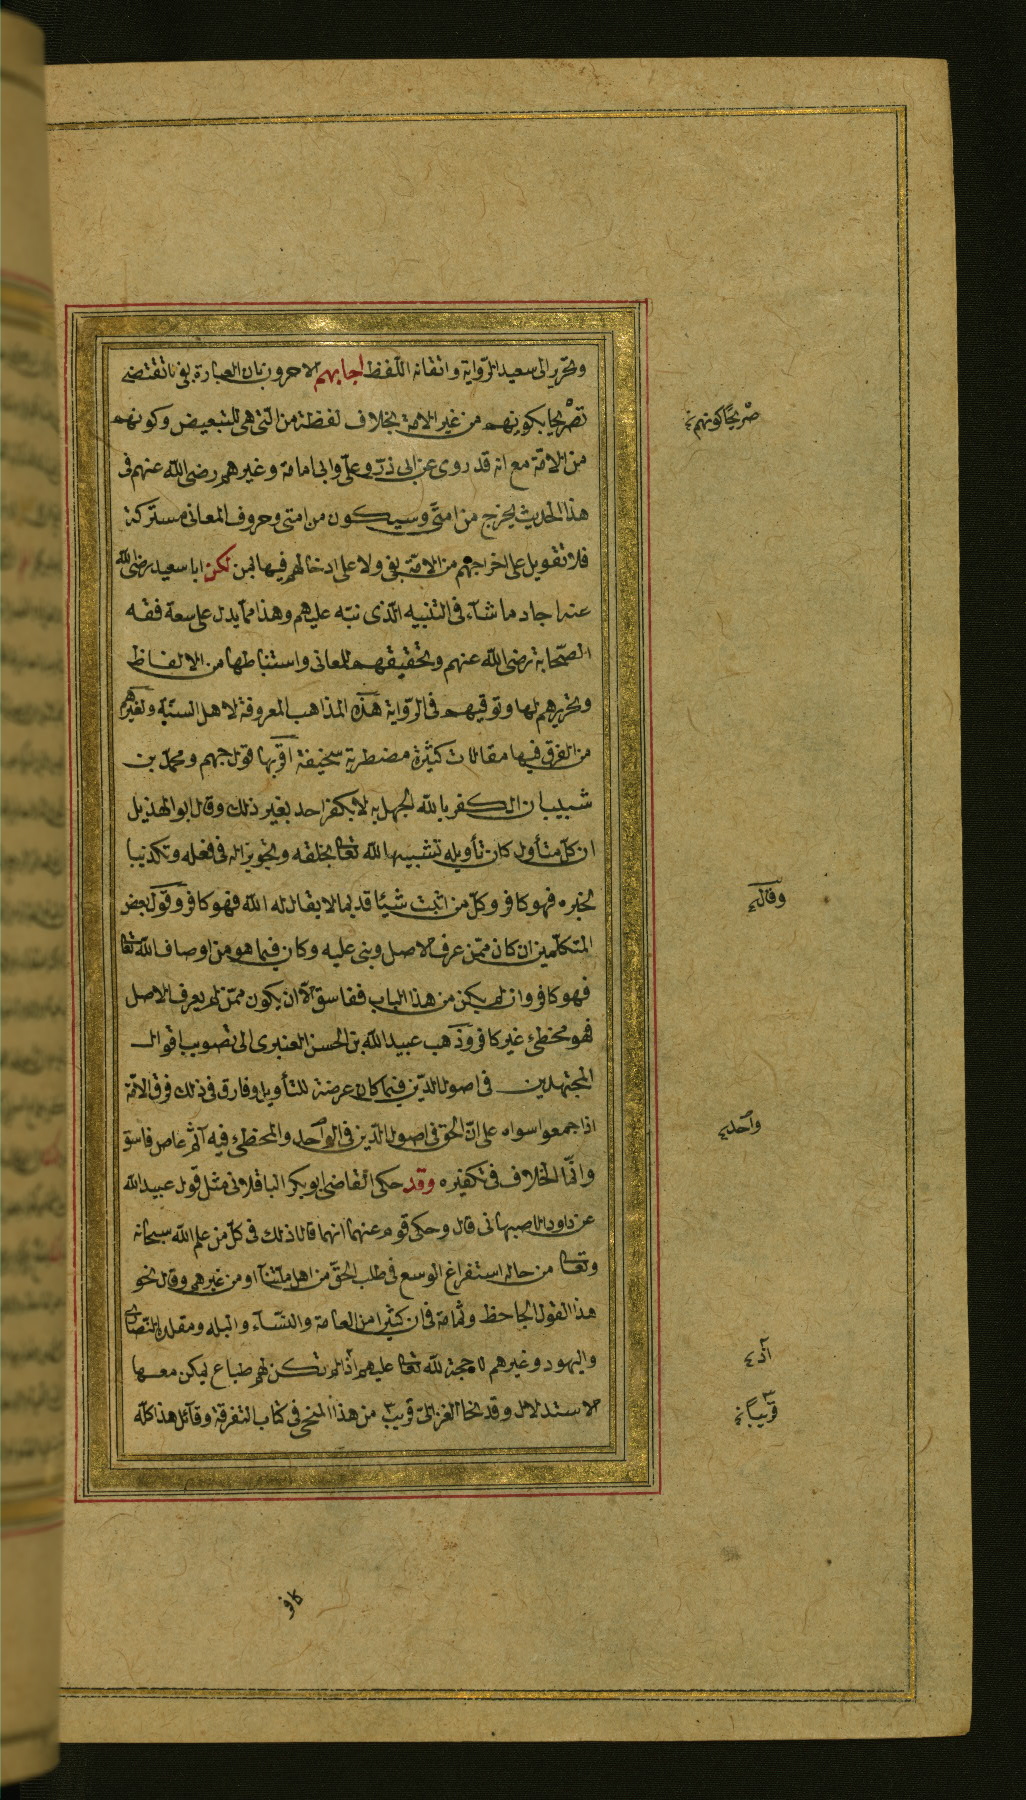 وتحرير ابى سعيد الرواية واتقانه اللفظ اجابهم الاخرون بان العبارة بفى لا تقتضى
تصريحا بكونهم من غير الامة بخلاف لفظة من التى هى للتبعيض وكونهم
من الامّة مع انه قد روى عن ابى ذرّ وعلىّ وابى امامة وغيرهم رضى الله عنهم فى
هذا الحديث يخرج من امتى وسيكون من امتى وحروف المعانى مشتركة
فلا تعويل على اخراجهم من الامّة بفى ولا على ادخالهم فيها بمن لكن ابا سعيد رضى الله
عنه اجاد ما شآء فى التنبيه الذى نبّه عليهم وهذا ممّا يدل على سعة فقه
الصّحابة رضى الله عنهم وتحقيقهم للمعانى واستنباطها من الالفاظ
وتحريرهم لها وتوقيهم فى الرّواية هذه المذاهب المعروفة لاهل السنّة ولغيرهم
من الفرق فيها مقالات كثيرة مضطربة سخيفة اقربها قول جهم ومحمّد بن
شبيب ان الكفر بالله الجهل به لا يكفر احد بغير ذلك وقال ابو الهذيل
ان كلّ متأول كان تأويله تشبيها لله تعالى بخلقه وتجويزا له فى فعله وتكذيبا
لخبره فهو كافر وكلّ من اثبت شيئا قديما لا يقال له الله فهو كافر وقول بعض
المتكلّمين ان كان ممّن عرف الاصل وبنى عليه وكان فيما هو من اوصاف الله تعالى
فهو كافر وان لم يكن من هذا الباب ففاسق الّا ان يكون ممّن لم يعرف الاصل
فهو مخطئ غير كافر وذهب عبيد الله بن الحسن العنبرى الى تصويب اقوال
المجتهدين فى اصول الدّين فيما كان عرضة للتأويل وفارق فى ذلك فرق الامّة
اذ اجمعوا سواه على انّ الحق فى اصول الدّين فى الوآحد والمخطئ فيه آثم عاص فاسق
وانّما الخلاف فى تكفيره وقد حكى القاضى ابو بكر الباقلانى مثل قول عبيد الله
عن داود الاصبهانى قال وحكى قوم عنهما انهما قالا ذلك فى كلّ من علم الله سبحانه
وتعالى من حاله استفراغ الوسع فى طلب الحقّ من اهل ملّتنا او من غيرهم وقال نحو
هذا القول الجاحظ وثمامة فى ان كثيرا من العامة والنسآء والبله ومقلدة النّصارى
واليهود وغيرهم لا حجة لله تعالى عليهم اذ لم تكن لهم طباع يمكن معها
الاستدلال وقد نحا الغزالىّ قريب من هذا المنحى فى كتاب التفرقة وقآئل هذا كلّه
صريحًا كونهم
وقال
وآحد
آذ
قريبًا
كافر